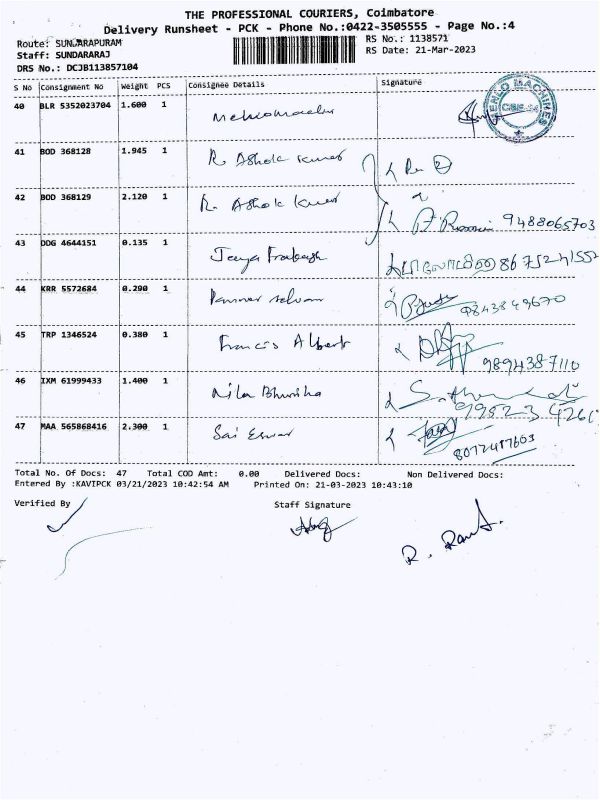 THE PROFESSIONAL COURIERS, Coimbatore
Delivery Runsheet - PCK - Phone No.:0422-3505555 - Page No.:4
Route: SUNDARAPURAM RS No.: 1138571
Staff: SUNDARARAJ RS Date: 21-Mar-2023
DRS No.: DCJB113857104
S No Consignment No Weight PCS Consignee Details Signature
40 BLR 5352023704 1.600 1 MENLO MACHINES
41 BOD 368128 1.945 1 R. Ashok Kumar
42 BOD 368129 2.120 1 R. Ashok Kumar 9488065703
43 DDG 4644151 0.135 1 Jeya Prakash
44 KRR 5572684 0.290 1 Panneer selvam 9843849670
45 TRP 1346524 0.380 1 Francis Albert 9894387110
46 IXM 61999433 1.400 1 Nila
47 MAA 565868416 2.300 1 Sai Eswar
Total No. Of Docs: 47 Total COD Amt: 0.00 Delivered Docs: Non Delivered Docs:
Entered By :KAVIPCK 03/21/2023 10:42:54 AM Printed On: 21-03-2023 10:43:10
Verified By Staff Signature